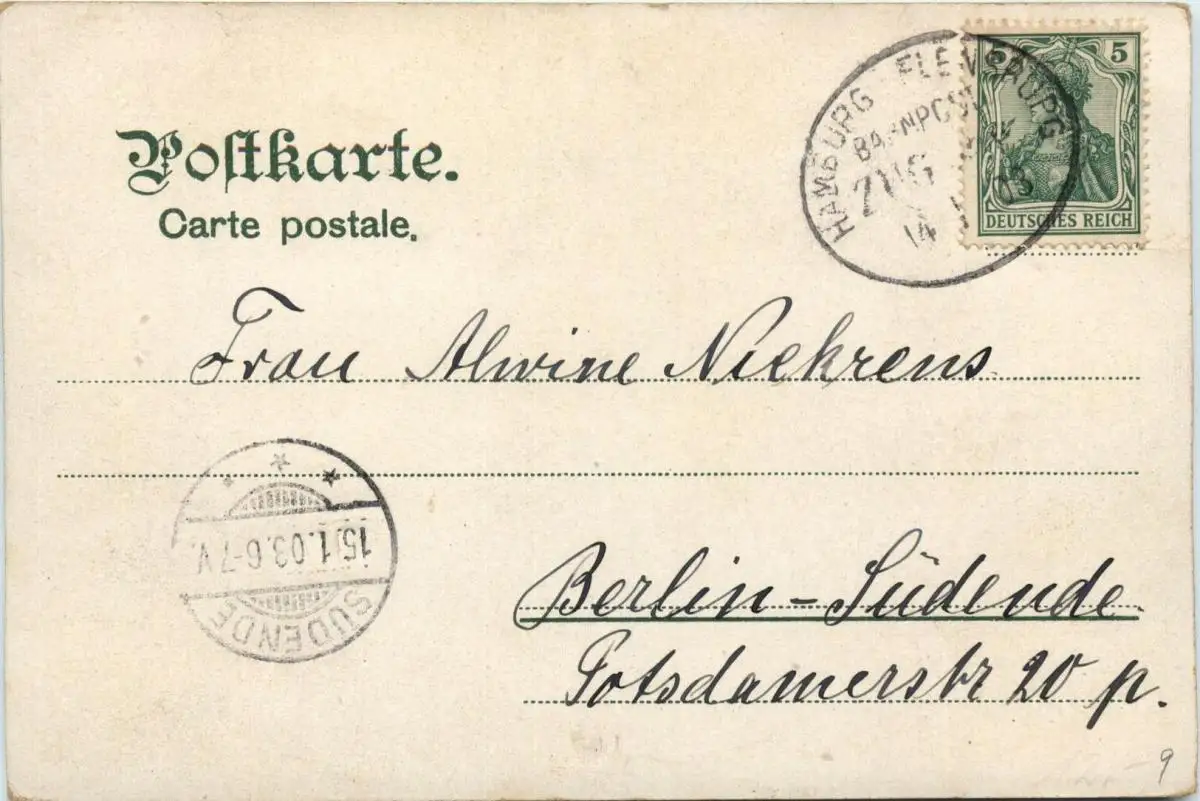 Postkarte.
Carte postale.
5 5
DEUTSCHES REICH
HAMBURG FLENSBURG
BAHNPOST
ZUG
14 1 03
Frau Alwine Niekrens
15.1.03.6-7V.
SÜDENDE
Berlin-Südende
Potsdamerstr 20 p.
9